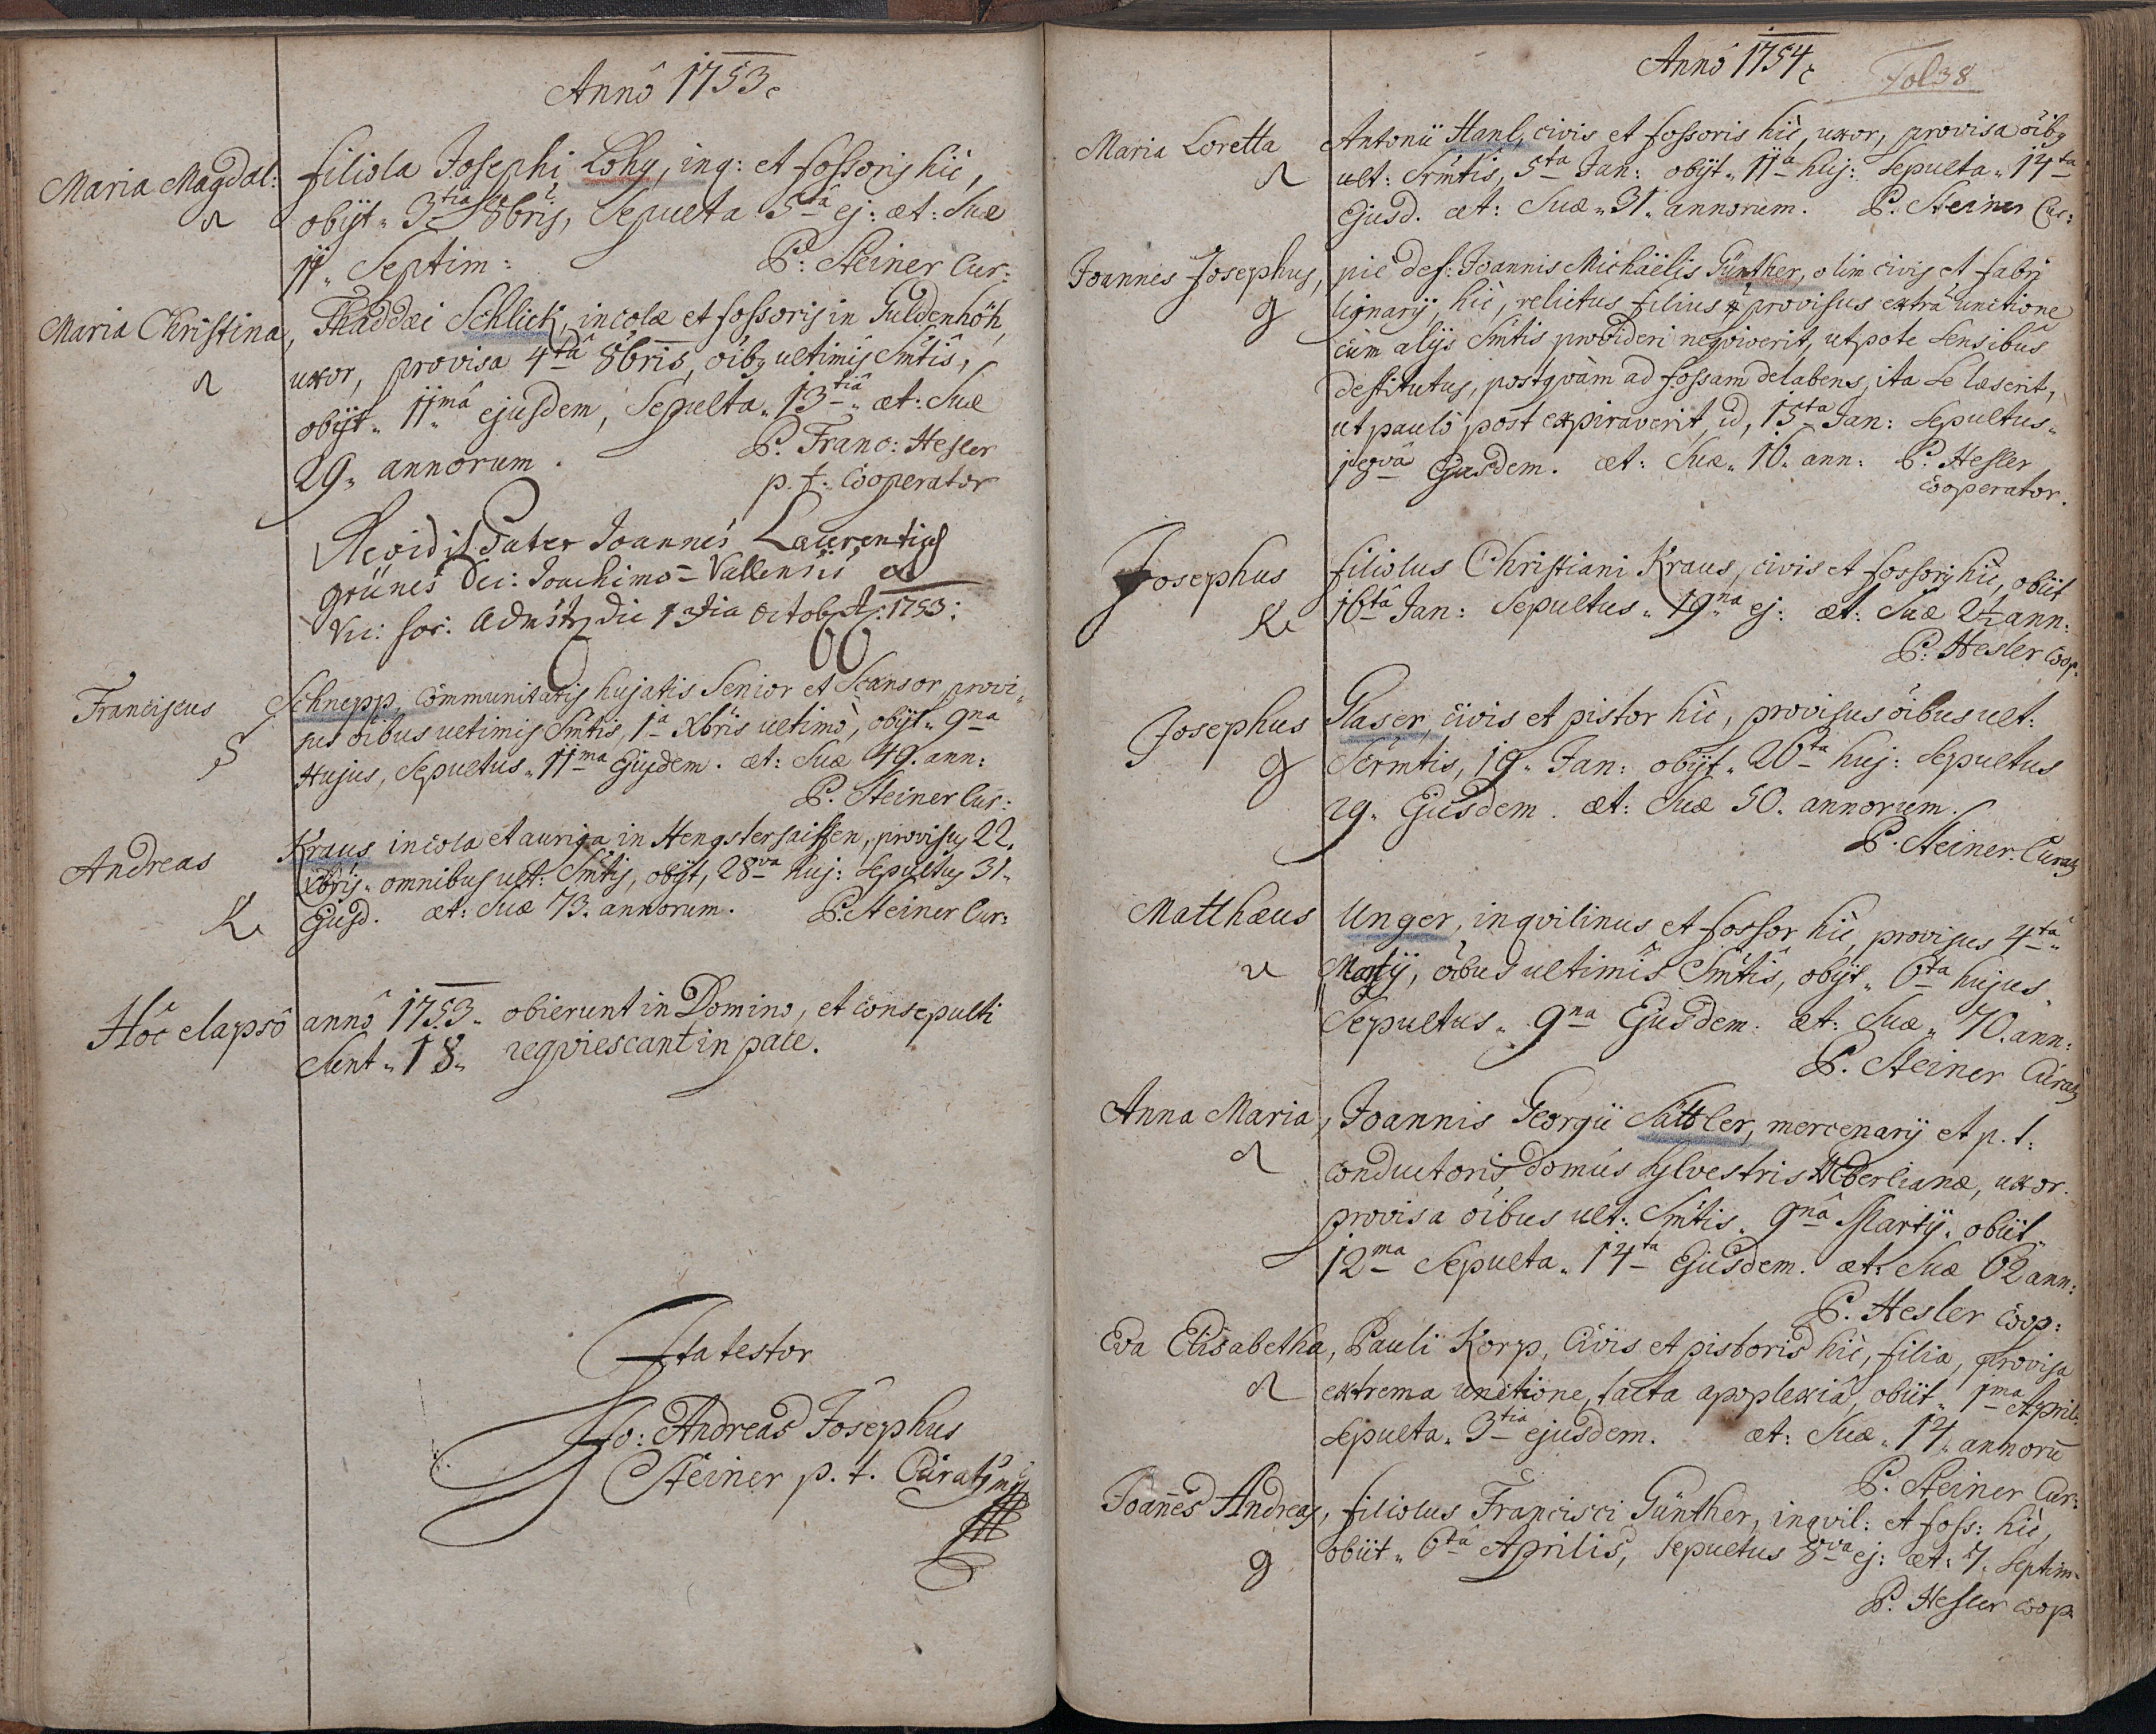 Annô 1753.
Maria Magdal: filiola Josephi Lohy, inq: et fossoris hic,
obijt „ 3tia 8bris, Sepulta 5tâ ej: æt: suæ
11 „ Septim: P: Steiner Cur:
Maria Christina, Thaddæi Schlick, incolæ et fossoris in Guldenhöh,
uxor, provisa 4tâ 8bris, oïbq ultimis Smtis,
obijt „ 11mâ ejusdem, Sepulta „ 13tiâ „ æt: suæ
29 „ annorum. P. Franc: Hesler
p. t. Cooperator
Revidit Pater Joannes Laurentius
grünes Dec: Joachimo-Vallensis et
Vic: for: Admstr die 13tia Octobris: 1753:
Franciscus Schnepp, Communitatis hujatis Senior et Scansor, provi-
s sus oibus ultimis Smtis, 1a Xbris ultimò, obijt „ 9na
Hujus, Sepultus „ 11ma Ejusdem. æt: suæ 49. ann:
P. Steiner Cur:
Andreas Kraus incola et auriga in Hengstersaiffen, provisus 22.
Xbris „ omnibus ult: Smtis, obijt, 28va huj: Sepultus 31 „
K Ejusd. æt: suæ 73. annorum. P. Steiner Cur:
Hôc elapsô annô 1753 „ obierunt in Domino, et consepulti
sunt „ 18 „ reqviescant in pace.
Ita testor
Jo: Andreas Josephus
Steiner p. t. Curatus
Annô 1754
Fol 38
Maria Loretta Antonii Hanl, civis et fossoris hic, uxor, provisa oibq
ult: Srmtis, 5ta Jan: obijt „ 11a huj: Sepulta „ 14ta
Ejusd. æt: suæ „ 31 „ annorum. P. Steiner Cur:
Joannes Josephus, pie def: Joannis Michäelis Günther, olim civis et fabri
g lignarij, hic, relictus filius provisus extrà unctione
cùm alijs Smtis provideri neqviverit, utpote sensibus
destitutus, postqvàm ad fossam delabens, ita se læserit,
ut paulò post expiraverit, id, 15ta Jan: Sepultus „
18va Ejusdem. æt: suæ „ 16. ann: P. Hesler
Cooperator.
Josephus filiolus Christiani Kraus, civis et fossoris hic, obiit
K 16ta Jan: Sepultus „ 19na ej: æt: suæ 2½ ann:
P: Hesler Coop.
Josephus Glaser, civis et pistor hic, provisus oibus ult:
g Sermtis, 19 „ Jan: obijt „ 26ta huj: Sepultus
29 „ Ejusdem. æt: suæ 50. annorum.
P. Steiner. Curatq
Matthæus Unger, inqvilinus et fossor hic, provisus 4ta „
u Martij, oibus ultimis Smtis, obijt „ 6ta hujus „
Sepultus „ 9na Ejusdem. æt: suæ „ 70. ann:
P. Steiner Curatq
Anna Maria, Joannis Georgii Sattler, mercenarij et p. t:
conductoris domûs sylvestris Heberlianæ, uxor.
provisa oibus ult: Smtis „ 9nâ Martij „ obiit „
12ma Sepulta „ 14ta Ejusdem. æt: suæ 62 ann:
P. Hesler Coop:
Eva Elisabetha, Pauli Korp, Civis et pistoris hic, filia, provisa
extrema unctione, tacta apoplexiâ, obiit „ 1ma April:
Sepulta „ 3tia ejusdem. æt: suæ „ 14 „ annorū
P. Steiner Cur:
Joañes Andreas, filiolus Francisci Günther, inqvil: et foss: hic,
g obiit „ 6tâ Aprilis, Sepultus 8va ej: æt: 7. Septim:
P. Hesler Coop